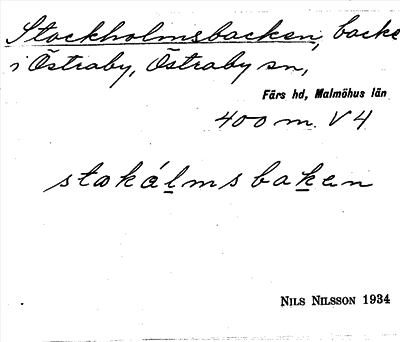 Stockholmsbacken, backe
i Östraby, Östraby sn,
Färs hd, Malmöhus län
400 m. V 4
stokålmsbaken
NILS NILSSON 1934